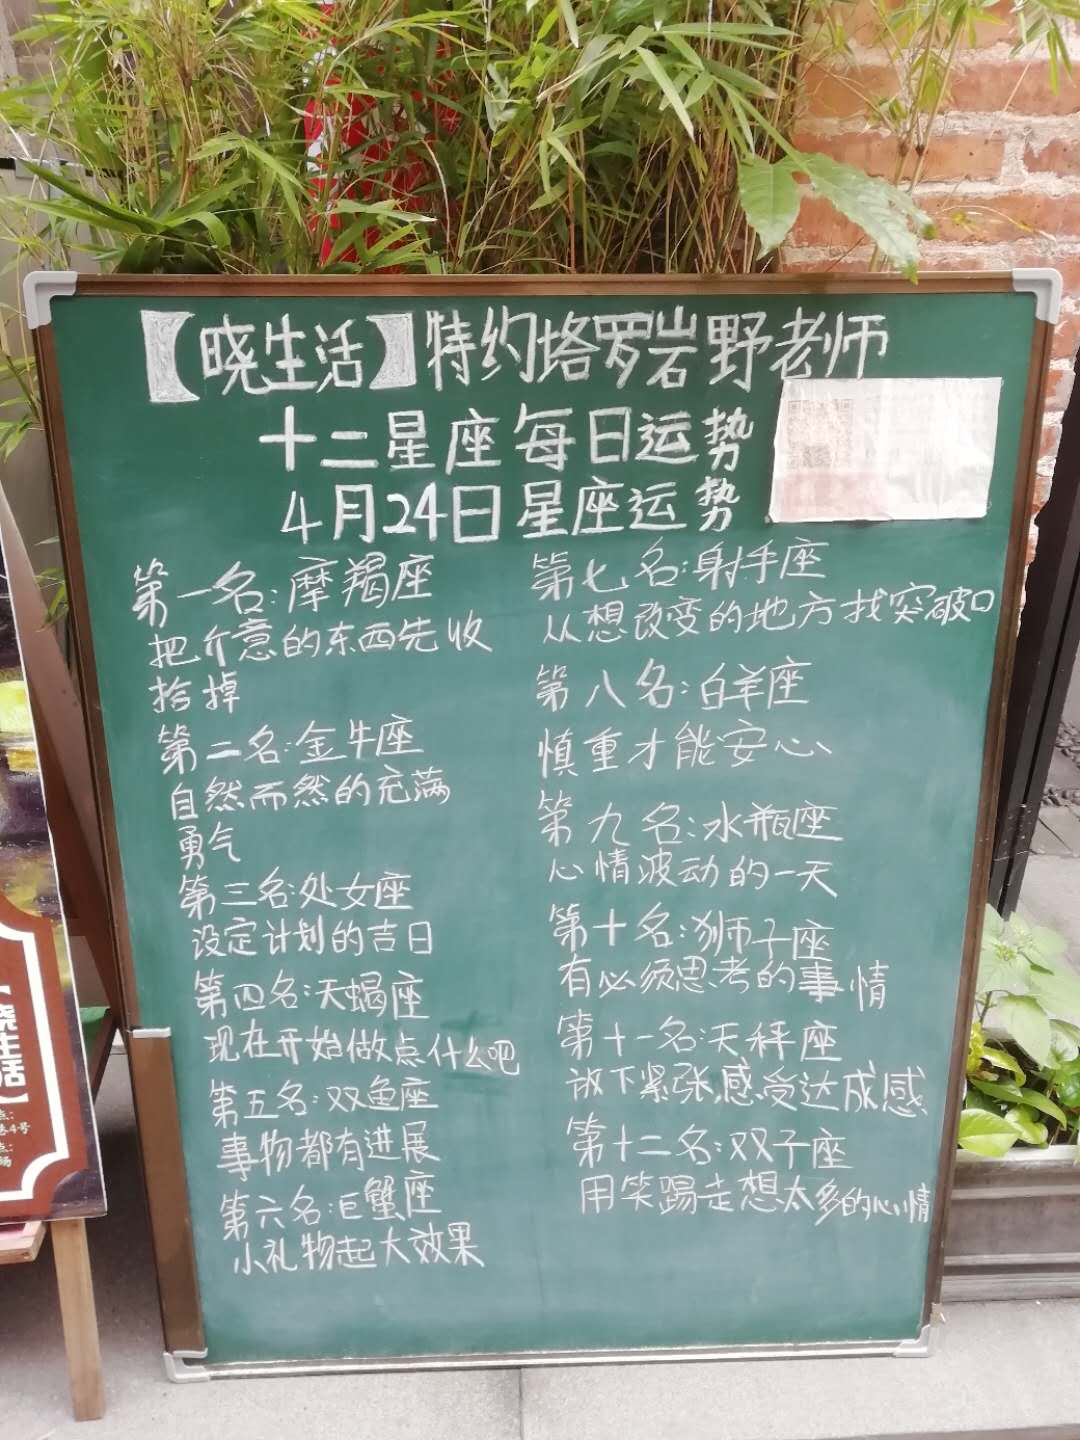 【晓生活】特约塔罗岩野老师
十二星座每日运势
4月24日星座运势
第一名:摩羯座
把介意的东西先收
拾掉
第二名:金牛座
自然而然的充满
勇气
第三名:处女座
设定计划的吉日
第四名:天蝎座
现在开始做点什么吧
第五名:双鱼座
事物都有进展
第六名:巨蟹座
小礼物起大效果
第七名:射手座
从想改变的地方找突破口
第八名:白羊座
慎重才能安心
第九名:水瓶座
心情波动的一天
第十名:狮子座
有必须思考的事情
第十一名:天秤座
放下紧张,感受达成感
第十二名:双子座
用笑踢走想太多的心情
晓生活】